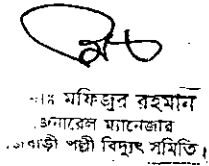 মফিজুর রহমান
জেনারেল ম্যানেজার
পল্লী বিদ্যুৎ সমিতি।